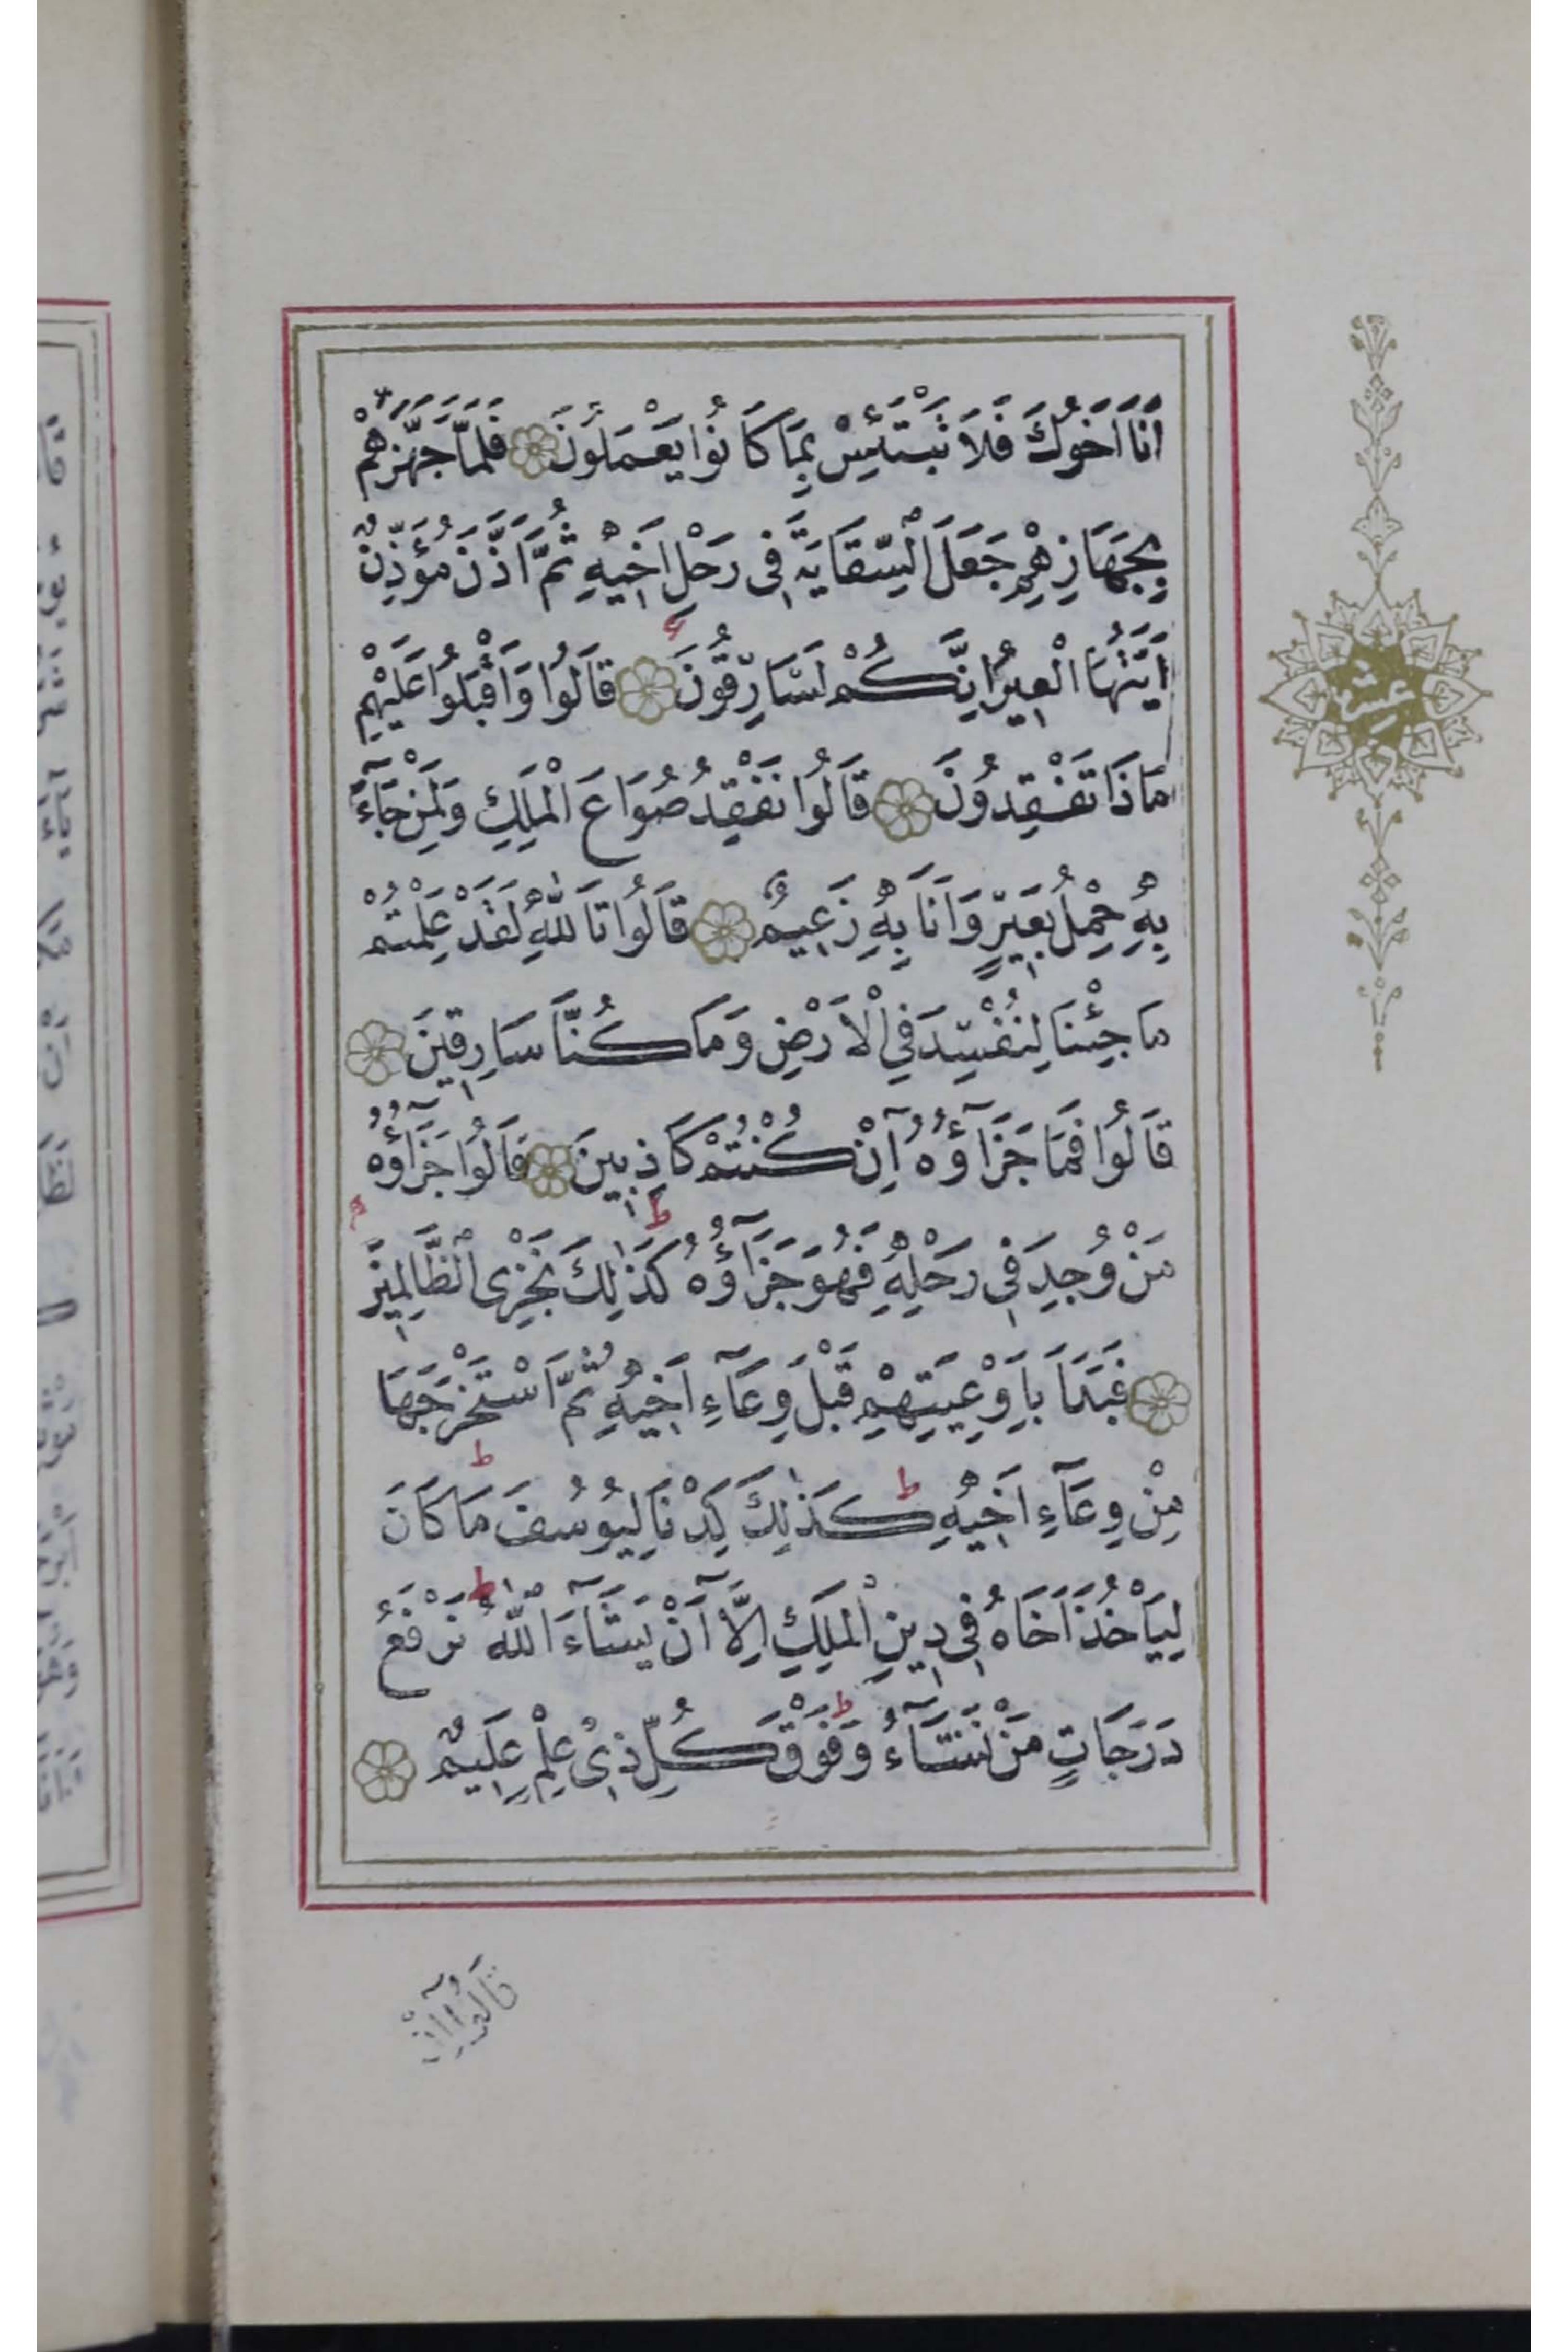 اَنَا اَخُوكَ فَلَا تَبْتَئِسْ بِمَا كَانُوا يَعْمَلُونَ فَلَمَّا جَهَّزَهُمْ
بِجَهَازِهِمْ جَعَلَ السِّقَايَةَ فِى رَحْلِ اَخِيهِ ثُمَّ اَذَّنَ مُؤَذِّنٌ
اَيَّتُهَا الْعِيرُ اِنَّكُمْ لَسَارِقُونَ قَالُوا وَاَقْبَلُوا عَلَيْهِمْ
مَاذَا تَفْقِدُونَ قَالُوا نَفْقِدُ صُوَاعَ الْمَلِكِ وَلِمَنْ جَآءَ
بِهِ حِمْلُ بَعِيرٍ وَاَنَا بِهِ زَعِيمٌ قَالُوا تَاللّٰهِ لَقَدْ عَلِمْتُمْ
مَا جِئْنَا لِنُفْسِدَ فِي الْاَرْضِ وَمَا كُنَّا سَارِقِينَ
قَالُوا فَمَا جَزَآؤُهُ اِنْ كُنْتُمْ كَاذِبِينَ قَالُوا جَزَآؤُهُ
مَنْ وُجِدَ فِى رَحْلِهِ فَهُوَ جَزَآؤُهُ ط كَذٰلِكَ نَجْزِى الظَّالِمِينَ
فَبَدَاَ بِاَوْعِيَتِهِمْ قَبْلَ وِعَآءِ اَخِيهِ ثُمَّ اسْتَخْرَجَهَا
مِنْ وِعَآءِ اَخِيهِ ط كَذٰلِكَ كِدْنَا لِيُوسُفَ ط مَا كَانَ
لِيَاْخُذَ اَخَاهُ فِى دِينِ الْمَلِكِ اِلَّآ اَنْ يَشَآءَ اللّٰهُ ط نَرْفَعُ
دَرَجَاتٍ مَنْ نَشَآءُ ط وَفَوْقَ كُلِّ ذِى عِلْمٍ عَلِيمٌ
قَالُوآ اِنْ